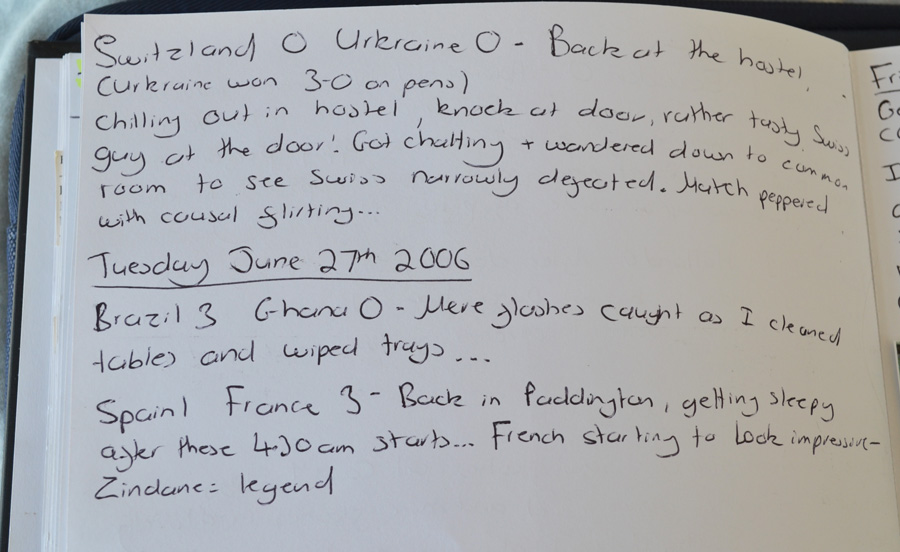 Switzland 0 Urkraine 0 - Back at the hostel
(Urkraine won 3-0 on pens)
Chilling out in hostel, knock at door, rather tasty Swiss
guy at the door! Got chatting + wandered down to common
room to see Swiss narrowly defeated. Match peppered
with causal flirting...
Tuesday June 27th 2006
Brazil 3 Ghana 0 - Mere flashes caught as I cleaned
tables and wiped trays...
Spain 1 France 3 - Back in Paddington, getting sleepy
after these 4.30am starts... French starting to look impressive -
Zindane = legend
Fr